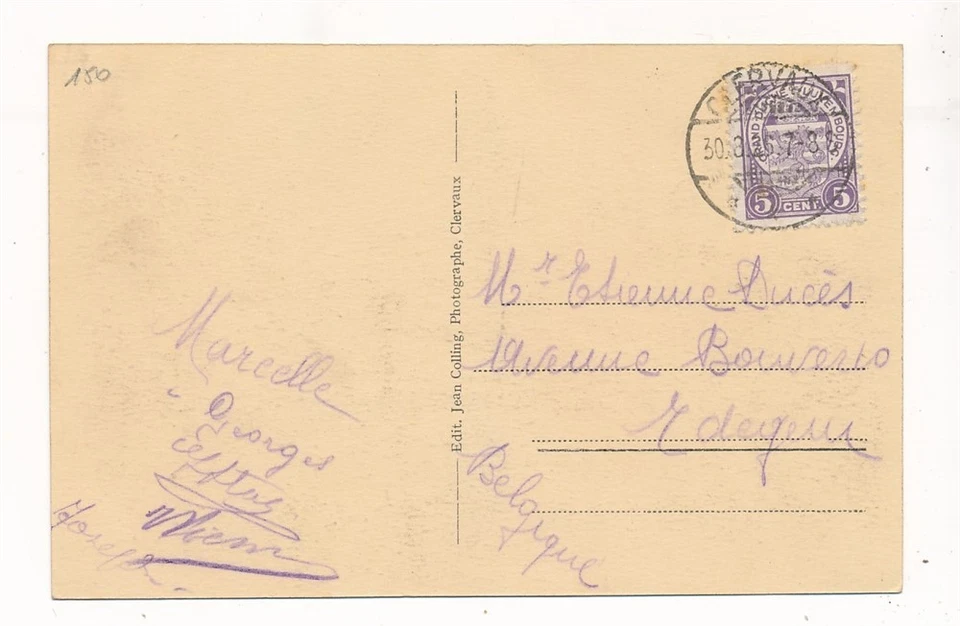 150
CLERVAUX
30.8. 7-8
GRAND-DUCHÉ DE LUXEMBOURG
5 CENT. 5
Edit. Jean Colling, Photographe, Clervaux
Mr Etienne Ducès
Avenue
Edegem
Belgique
Marcelle
Georges
Joseph